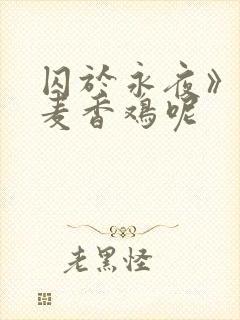 囚於永夜》
麦香鸡呢
老黑怪